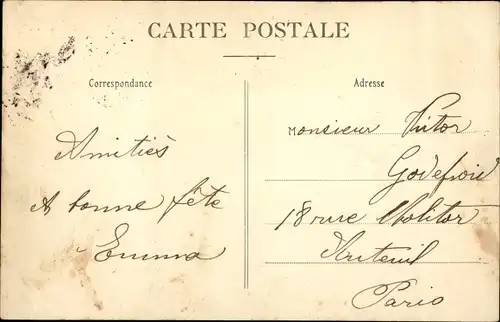 CARTE POSTALE
Correspondance
Amitiés
A bonne fête
Emma
Adresse
Monsieur Victor
Godefroid
18 rue Molitor
Auteuil
Paris